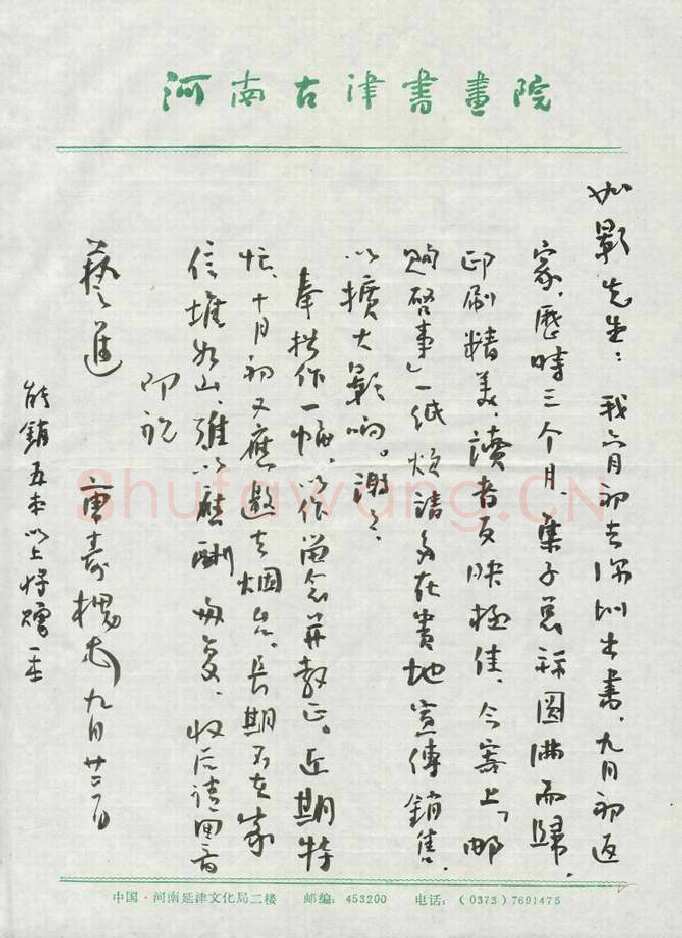 河南古津書畫院
如影先生：我六月初去深圳出書，九月初返
家，歷時三个月，集子総祘圆满而歸，
印刷精美，讀者反映極佳，今寄上「邮
購啓事」一纸烦請多在贵地宣傳銷售，
以擴大影响。谢々。
奉拙作一幅，以作留念并教正。近期特
忙，十月初又應邀去烟台，長期不在家
信堆如山，难以應酬 每复，收后请回音
即祝
藝進
庚壽 九月廿二日
能銷五本以上将赠一本
Shufawang.CN
中国·河南延津文化局二楼 邮编：453200 电话：（0373）7691475